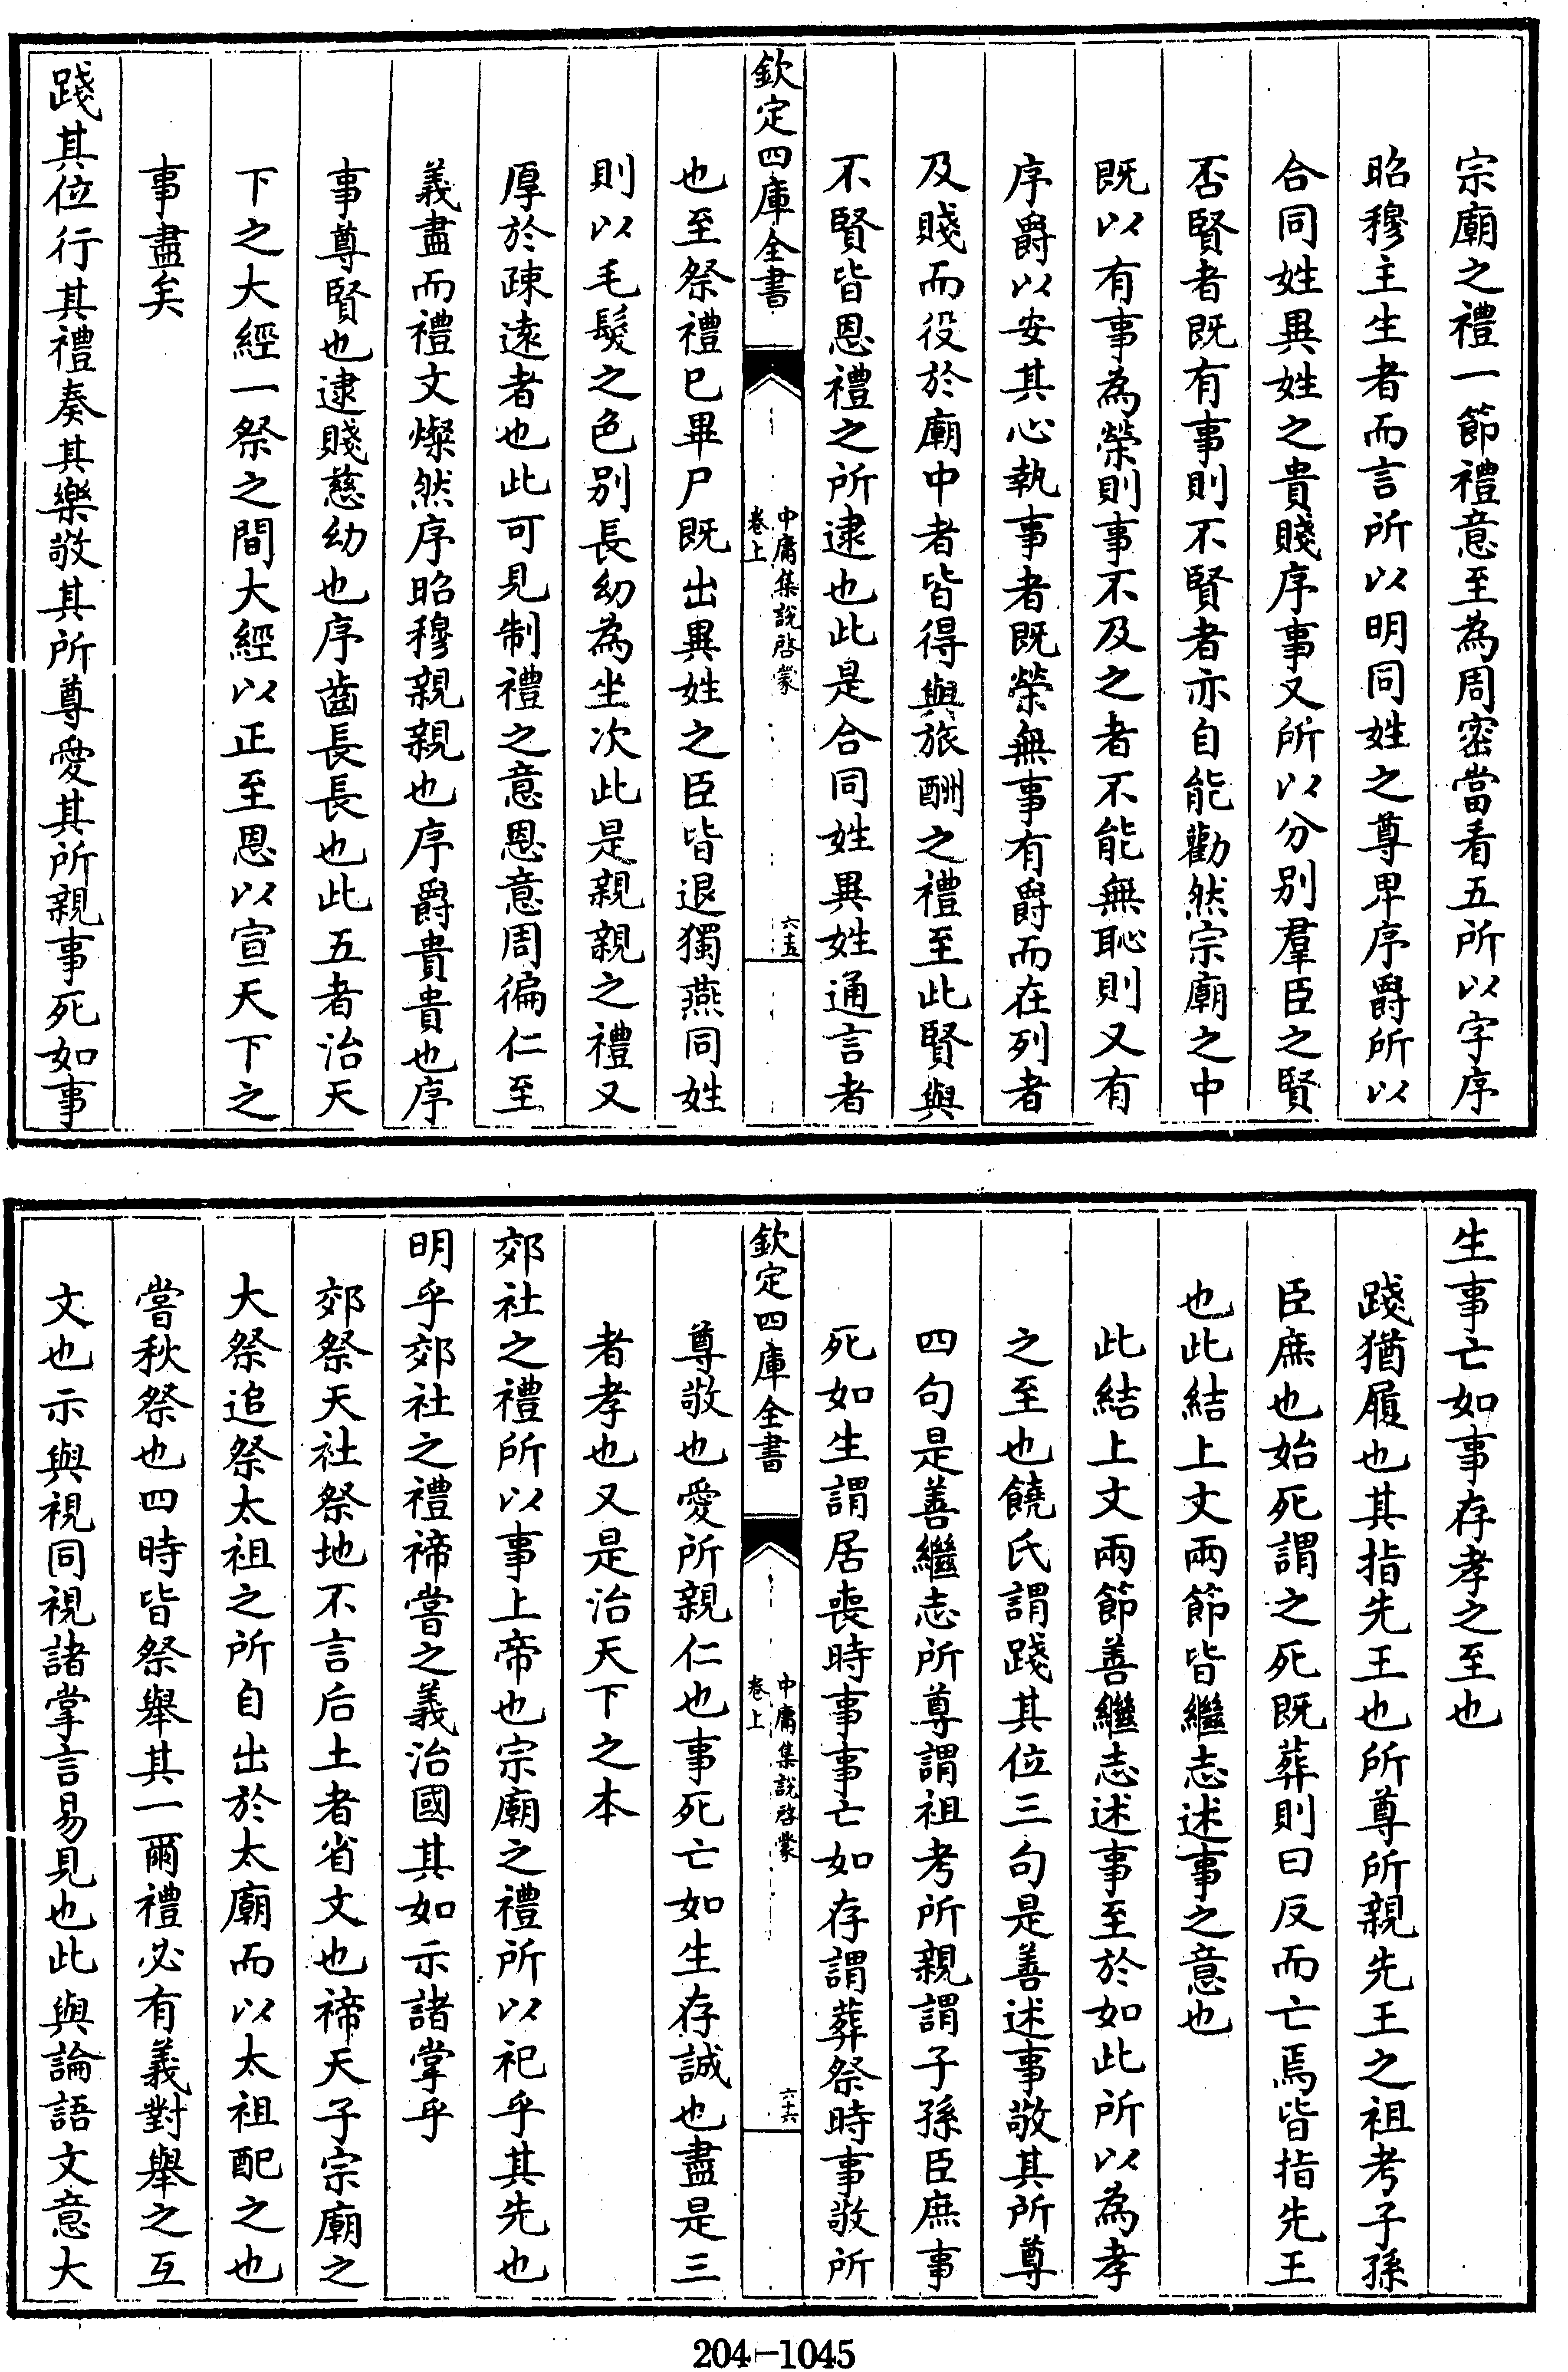 宗廟之禮一節禮意至為周密當看五所以字序
昭穆主生者而言所以明同姓之尊卑序爵所以
合同姓異姓之貴賤序事又所以分別羣臣之賢
否賢者既有事則不賢者亦自能勸然宗廟之中
既以有事為榮則事不及之者不能無恥則又有
序爵以安其心執事者既榮無事有爵而在列者
及賤而役於廟中者皆得與旅酬之禮至此賢與
不賢皆恩禮之所逮也此是合同姓異姓通言者
欽定四庫全書
中庸集說啓蒙
卷上
六十五
也至祭禮已畢尸既出異姓之臣皆退獨燕同姓
則以毛髮之色別長幼為坐次此是親親之禮又
厚於疎遠者也此可見制禮之意恩意周徧仁至
義盡而禮文燦然序昭穆親親也序爵貴貴也序
事尊賢也逮賤慈幼也序齒長長也此五者治天
下之大經一祭之間大經以正至恩以宣天下之
事盡矣
踐其位行其禮奏其樂敬其所尊愛其所親事死如事
生事亡如事存孝之至也
踐猶履也其指先王也所尊所親先王之祖考子孫
臣庶也始死謂之死既葬則曰反而亡焉皆指先王
也此結上文兩節皆繼志述事之意也
此結上文兩節善繼志述事至於如此所以為孝
之至也饒氏謂踐其位三句是善述事敬其所尊
四句是善繼志所尊謂祖考所親謂子孫臣庶事
死如生謂居喪時事事亡如存謂葬祭時事敬所
欽定四庫全書
中庸集說啓蒙
卷上
六十六
尊敬也愛所親仁也事死亡如生存誠也盡是三
者孝也又是治天下之本
郊社之禮所以事上帝也宗廟之禮所以祀乎其先也
明乎郊社之禮禘嘗之義治國其如示諸掌乎
郊祭天社祭地不言后土者省文也禘天子宗廟之
大祭追祭太祖之所自出於太廟而以太祖配之也
嘗秋祭也四時皆祭舉其一爾禮必有義對舉之互
文也示與視同視諸掌言易見也此與論語文意大
204-1045